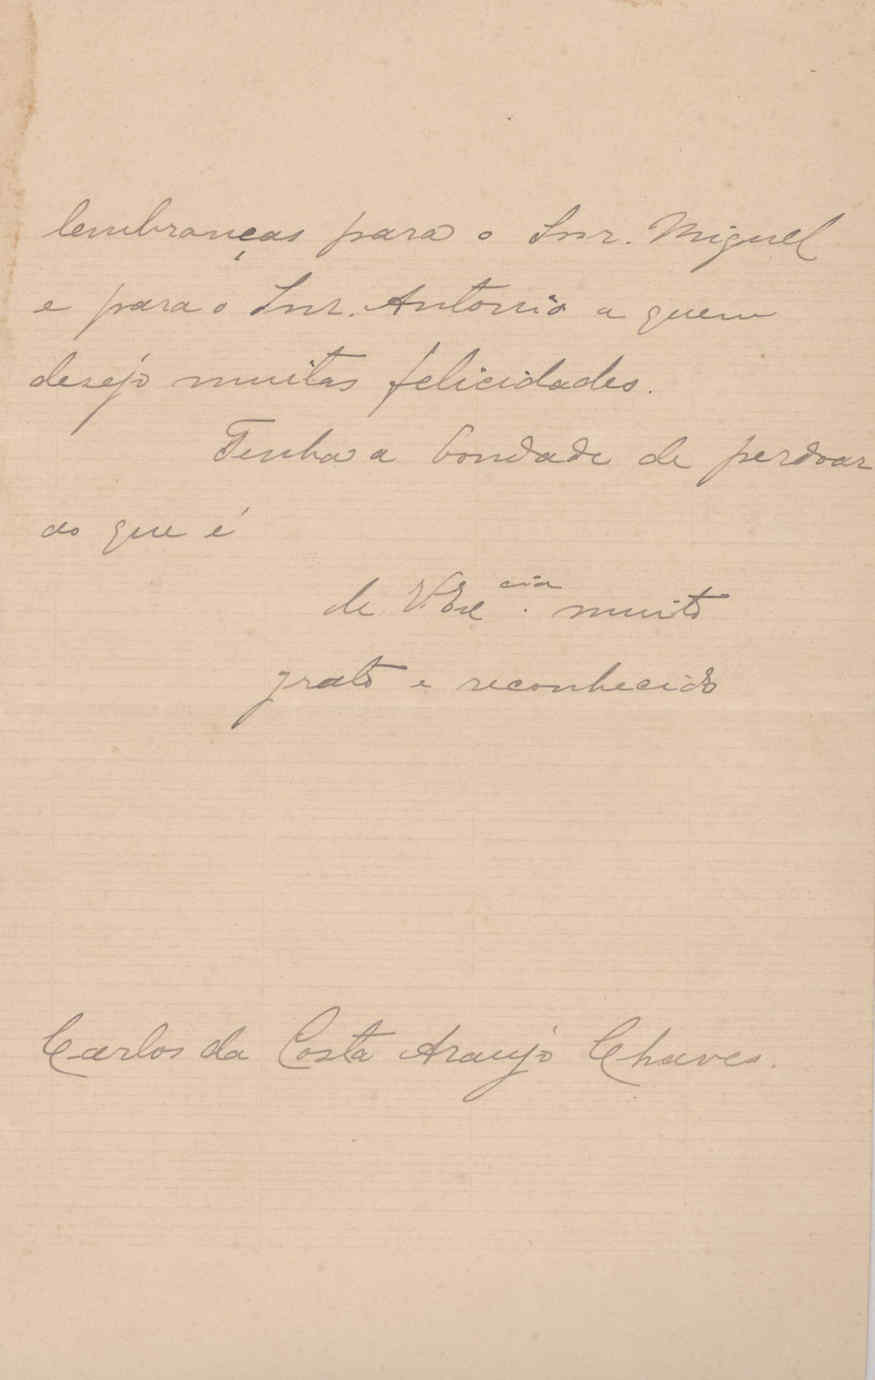 lembranças para o Snr. Miguel
e para o Snr. Antonio a quem
desejo muitas felicidades.
Tenha a bondade de perdoar
ao que é
de V. Exᶜⁱᵃ. muito
grato e reconhecido
Carlos da Costa Araujo Chaves.